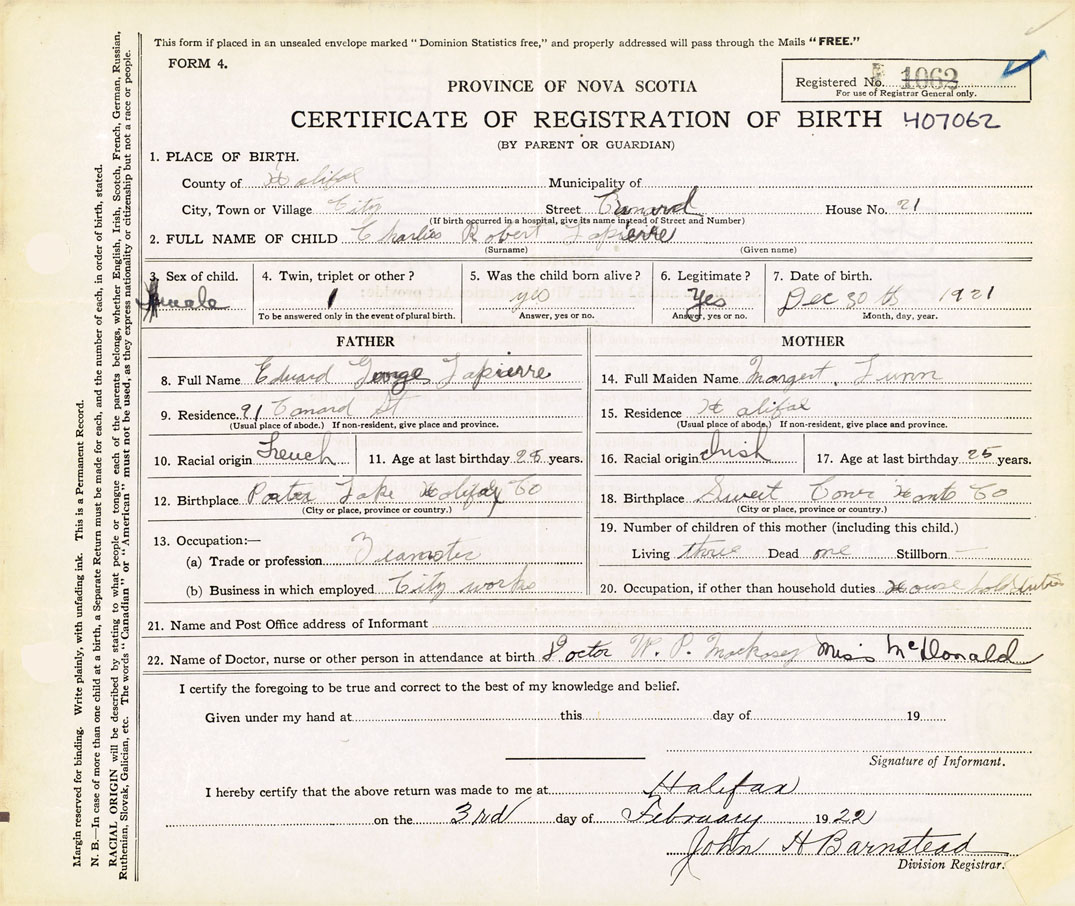 This form if placed in an unsealed envelope marked "Dominion Statistics free," and properly addressed will pass through the Mails "FREE."
FORM 4.
PROVINCE OF NOVA SCOTIA
Registered No. 1062
For use of Registrar General only.
CERTIFICATE OF REGISTRATION OF BIRTH 407062
(BY PARENT OR GUARDIAN)
1. PLACE OF BIRTH.
County of Halifax Municipality of
City, Town or Village City Street Cunard House No. 21
(If birth occurred in a hospital, give its name instead of Street and Number)
2. FULL NAME OF CHILD Charlies Robert Lapierre
(Surname) (Given name)
3. Sex of child. 4. Twin, triplet or other? 5. Was the child born alive? 6. Legitimate? 7. Date of birth.
male 1 yes Yes Dec 30th 1921
To be answered only in the event of plural birth. Answer, yes or no. Answer, yes or no. Month, day, year.
FATHER MOTHER
8. Full Name Edward George Lapierre
14. Full Maiden Name Margert Lunn
9. Residence. 21 Conard St
(Usual place of abode.) If non-resident, give place and province.
15. Residence Halifax
(Usual place of abode.) If non-resident, give place and province.
10. Racial origin French 11. Age at last birthday years.
16. Racial origin Irish 17. Age at last birthday 25 years.
12. Birthplace Porter Lake Halifax Co
(City or place, province or country.)
18. Birthplace Hants Co
(City or place, province or country.)
13. Occupation:—
(a) Trade or profession Teamster
(b) Business in which employed City works
19. Number of children of this mother (including this child.)
Living three Dead one Stillborn —
20. Occupation, if other than household duties House hold duties
21. Name and Post Office address of Informant
22. Name of Doctor, nurse or other person in attendance at birth Doctor W. P. Miss McDonald
I certify the foregoing to be true and correct to the best of my knowledge and belief.
Given under my hand at this day of 19
Signature of Informant.
I hereby certify that the above return was made to me at Halifax
on the 3rd day of February 1922
John H Barnstead
Division Registrar.
Margin reserved for binding. Write plainly, with unfading ink. This is a Permanent Record.
N. B.—In case of more than one child at a birth, a Separate Return must be made for each, and the number of each, in order of birth, stated.
RACIAL ORIGIN will be described by stating to what people or tongue each of the parents belongs, whether English, Irish, Scotch, French, German, Russian,
Ruthenian, Slovak, Galician, etc. The words "Canadian" or "American" must not be used, as they express nationality or citizenship but not a race or people.